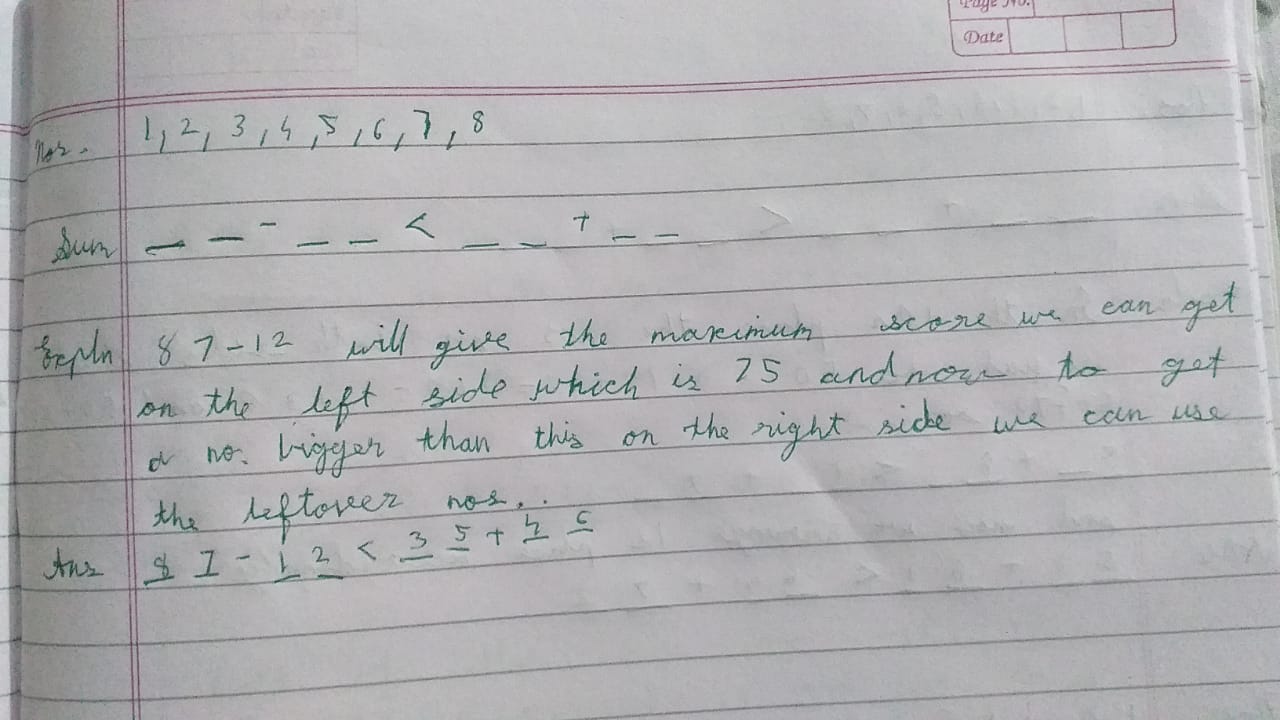 Page No.
Date
Nos. 1, 2, 3, 4, 5, 6, 7, 8
Sum _ _ - _ _ < _ _ + _ _
Expln 87-12 will give the maximum score we can get
on the left side which is 75 and now to get
a no. bigger than this on the right side we can use
the leftover nos..
Ans 8 7 - 1 2 < 3 5 + 4 6